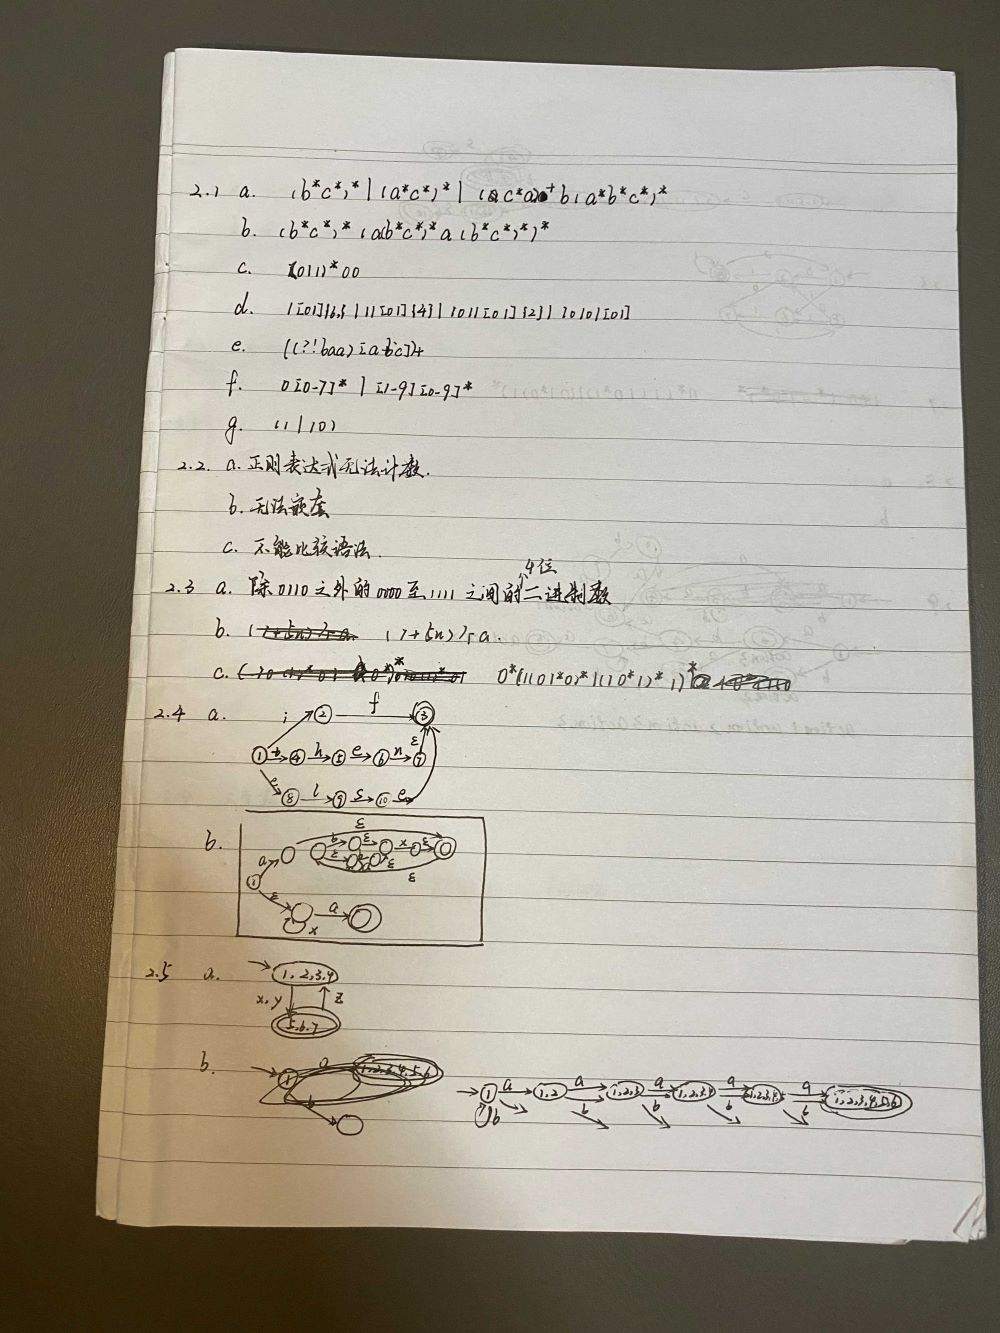 2.1 a. (b*c*)* | (a*c*)* | (a c*a)+ b(a*b*c*)*
b. (b*c*)* (a(b*c*)*a (b*c*)*)*
c. (0|1)*00
d. 1[01]{6,} | 11[01]{4} | 1011[01]{2} | 10101[01]
e. ((?!baa)[abc])+
f. 0[0-7]* | [1-9][0-9]*
g. (1|10)
2.2. a. 正则表达式无法计数.
b. 无法嵌套
c. 不能比较语法.
2.3 a. 除0110之外的0000至1111之间的4位二进制数
b. (7+5n)个a.
c. 0*(1(01*0)*1(10*1)*1)*
2.4 a. i 2 f 3
1 t 4 h 5 e 6 n 7 ε
e 8 l 9 s 10 e
b. ε
a b ε x ε
1 ε ε
ε ε
a
x
2.5 a. 1,2,3,4
x,y z
5,6,7
b. 1 a 1,2,3,4,5,6 b
1 a 1,2 a 1,2,3 a 1,2,3,4 a a 1,2,3,4,5,6
b b b b b